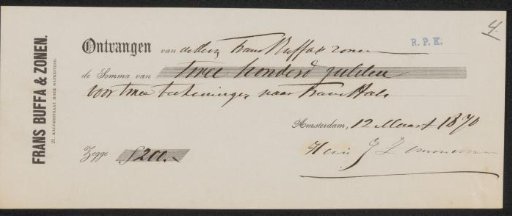 4
R.P.K.
FRANS BUFFA & ZONEN.
Ontvangen van de Heer Frans Buffa & zonen
de Somma van twee honderd gulden
voor twee teekeningen naar Frans Hals
Amsterdam, 12 Maart 1870
Zegge ƒ 200.-
Henri J